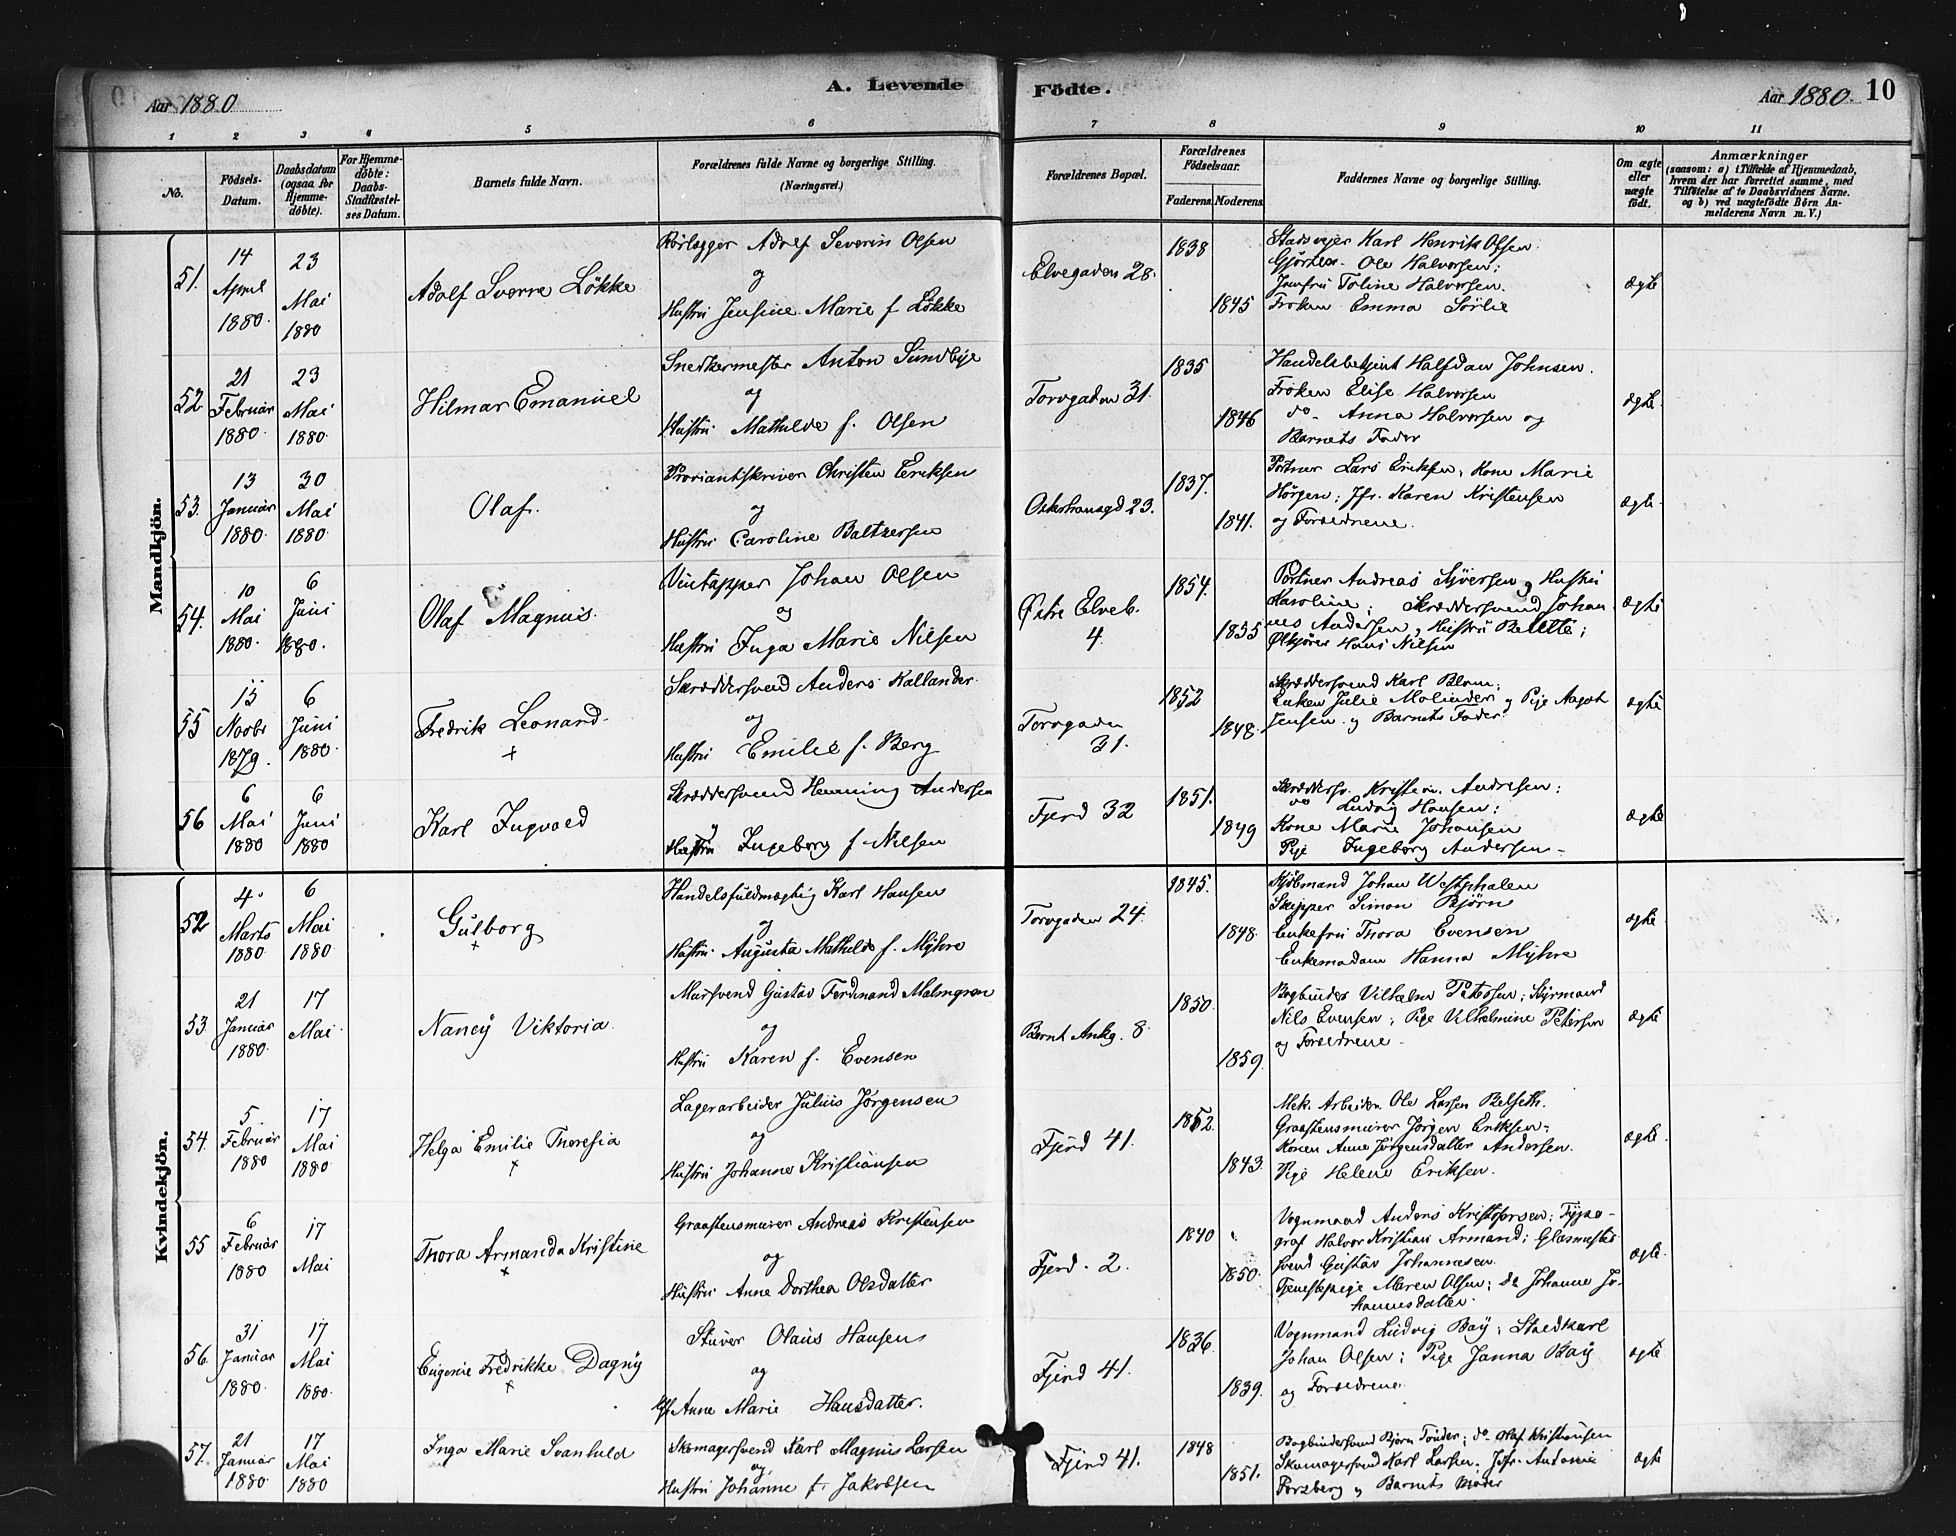 Aar 1880
A. Levende
Födte.
Aar 1880.
10
1 2 3 4 5 6 7 8 9 10 11
No.
Födsels-
Datum.
Daabsdatum
(ogsaa for
Hjemme-
döbte).
For Hjemme-
döbte:
Daabs-
Stadfæstel-
ses Datum.
Barnets fulde Navn.
Forældrenes fulde Navne og borgerlige Stilling.
(Næringsvei.)
Forældrenes Bopæl.
Forældrenes
Födselsaar.
Faderens. Moderens.
Faddernes Navne og borgerlige Stilling.
Om ægte
eller
uægte
födt.
Anmærkninger
(saasom: a) i Tilfælde af Hjemmedaab,
hvem der har forrettet samme, med
Tilföielse af to Daabsvidners Navne.
og b) ved uægtefödte Börn An-
melderens Navn m. V.)
Mandkjön.
51.
14
April
1880.
23
Mai
1880
Adolf Sverre Løkke
Rørlegger Adolf Severin Olsen
og
Hustru Jensine Marie f Løkke
Elvegaden 28.
1838
1845
Karl Henrik Olsen
Gjørtler Ole Halvorsen;
Jomfru Toline Halvorsen.
Frøken Emma Sørlie
ægte
52
21
Februar
1880.
23
Mai
1880.
Hilmar Emanuel
Snedkermester Anton Sundbye
og
Hustru Mathilde f. Olsen
Torvgaden 31.
1835
1846
Handelsbetjent Halfdan Johnsen.
Frøken Elise Halvorsen
do. Anna Halvorsen og
Barnets Fader
ægte.
53.
13
Januar
1880.
30
Mai
1880.
Olaf.
Proviantskriver Christen Eriksen
og
Hustru Caroline Baltzersen
23.
1837.
1841.
Portner Lars Eriksen, Kone Marie
Hørgen; Jfr. Karen Kristensen
og Forældrene.
ægte.
54.
10
Mai
1880.
6
Juni
1880.
Olaf Magnus.
Vintapper Johan Olsen
og
Hustru Inga Marie Nilsen
Østre Elveb.
4.
1854.
1855
Portner Andreas Syversen og Hustru
Karoline; Skræddersvend Johan-
nes Andersen og Hustru
Hans Nilsen
ægte
55
15
Novbr
1879.
6
Juni
1880.
Fredrik Leonard
+
Skræddersvend Anders Kallander.
og
Hustru Emilie f. Berg
Torvgaden
31.
1852
1848.
Skræddersvend Karl Blom;
Enken Julie Molinder og Pige Aagot
Jensen og Barnets Fader.
ægte
56
6
Mai
1880
6
Juni
1880
Karl Ingvald
Skræddersvend Henning Andersen
og
Hustru Ingeborg f Nilsen
Fjerd 32
1851.
1849
Skræddersv. Andresen;
do Ludvig Hansen;
Kone Marie Johansen
Pige Ingeborg Andersen
ægte
Kvindekjön.
52
4.
Marts
1880
6
Mai
1880
Gulborg
+
Handelsfuldmægtig Karl Hansen
og
Hustru Augusta Mathilde f. Myhre
Torvgaden 24.
1845.
1848.
Kjøbmand Johan Westphalen
Skipper Simon Bjørn
Enkefru Thora Evensen
Enkemadam Hanna Myhre
ægte
53.
21
Januar
1880.
17
Mai
Nancy Viktoria
Mursvend Gustav Ferdinand Malmgren
og
Hustru Karen f. Evensen
Bernt Ankg. 8.
1850.
1859.
Bogbinder Vilhelm Petersen; Styrmand
Nils Evensen; Pige Vilhelmine Petersen
og Forældrene.
ægte
54.
5.
Februar
1880
17
Mai
1880.
Helga Emilie Theresia
+
Lagerarbeider Julius Jørgensen
og
Hustru Johanne Kristiansen
Fjerd 41.
1852.
1843.
Mek. Arbeider Ole Larsen Belseth.
Graastensmurer Jørgen Eriksen
Konen Anne Jørgensdatter Andersen.
Pige Helene Eriksen.
ægte.
55
6
Februar
1880
17
Mai
Thora Armanda Kristine
+
Graastensmurer Andreas Kristensen
og
Hustru Anne Dorthea Olsdatter
Fjerd. 2.
1840
1850.
Vognmand Anders Kristofersen; Typo-
graf Halvor Kristian Armand; Glasmester
svend Gustav Johannesen.
Tjenestepige Maren Olsen; do Johanne Jo-
hannesdatter.
ægte.
56.
31
Januar
1880.
17
Mai
1880.
Eugenie Fredrikke Dagny
+
Stuver Olaus Hansen
og
Anne Marie Hansdatter.
Fjerd 41.
1836.
1839.
Vognmand Ludvig Bay; Staldkarl
Johan Olsen; Pige Janna Bay
og Forældrene.
ægte
57.
21
Januar
1880.
17
Mai
1880
Inga Marie Svanhild
Skomagersvend Karl Magnus Larsen
og
Hustru Johanne f. Jakobsen
Fjerd 41.
1848
1851.
Bogbindersvend Bjørn Tonder; do Olaf Kristiansen
Skomagersvend Karl Larsen. Jfr. Antonie
Forsberg og Barnets Moder
ægte